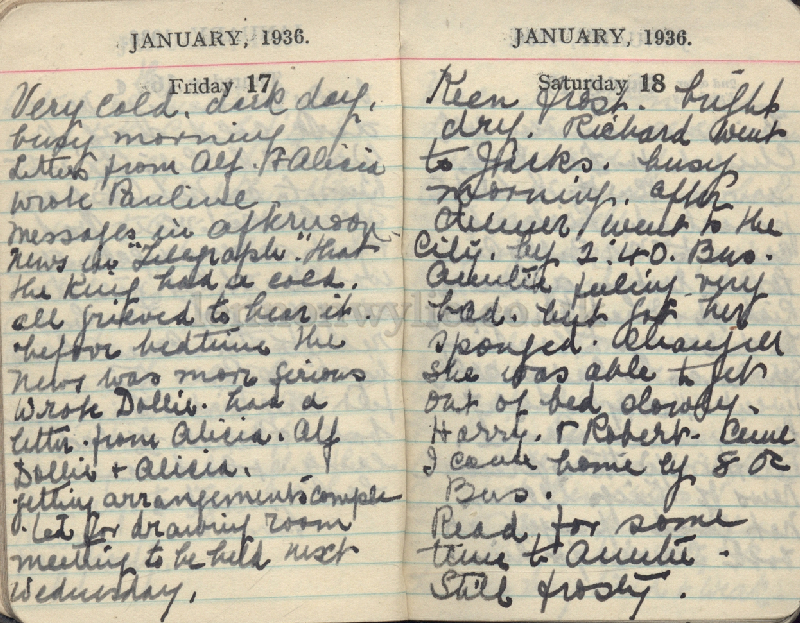 JANUARY, 1936.
Friday 17
Very cold. dark day.
busy morning
Letters from Alf. & Alicia
wrote Pauline
messages in afternoon
News in "Telegraph" that
the King had a cold.
all grieved to hear it.
before bedtime the
news was more serious
Wrote Dollie. had a
letter from Alicia. Alf
Dollie & Alicia.
getting arrangements comple
ted for drawing room
meeting to be held next
Wednesday.
JANUARY, 1936.
Saturday 18
Keen frost. bright
dry. Richard went
to Jacks. busy
morning. after
dinner went to the
City. by 2.40. Bus.
Auntie feeling very
bad. but got her
sponged. & changed
she was able to get
out of bed slowly.
Harry. & Robert. came
I came home by 8 oc
Bus.
Read for some
time to Auntie.
Still frosty.